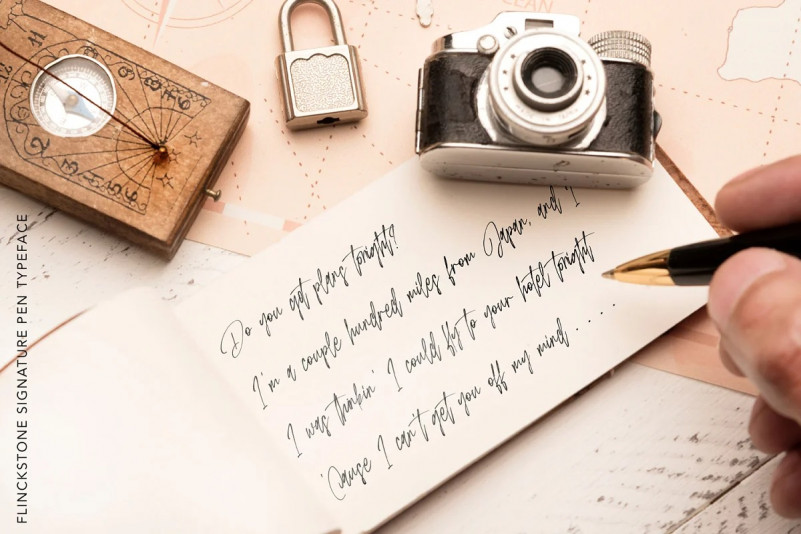 Do you got plans tonight?
I'm a couple hundred miles from Japan, and I
I was thinkin' I could fly to your hotel tonight
'Cause I can't get you off my mind . . . .
FLINCKSTONE SIGNATURE PEN TYPEFACE
11